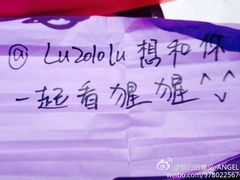 @Luzololu 想和你
一起看猩猩^^
@旅行的意义ANGEL
weibo.com/978022567